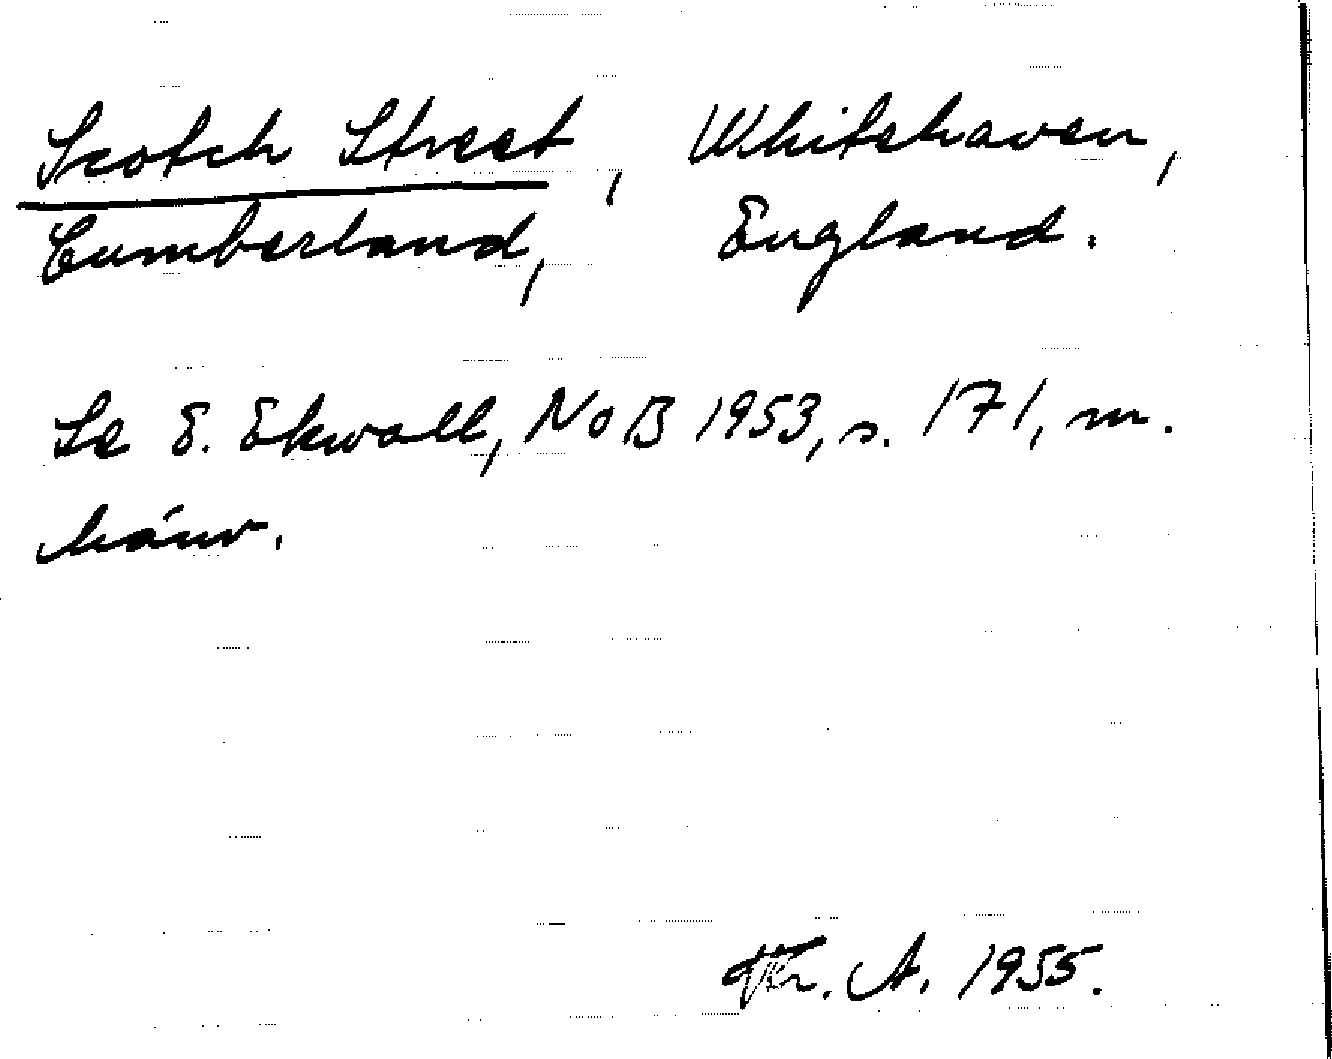 Scotch Street, Whitehaven,
Cumberland, England.
Se E. Ekwall, NoB 1953, s. 171, m.
hänv.
A. 1955.